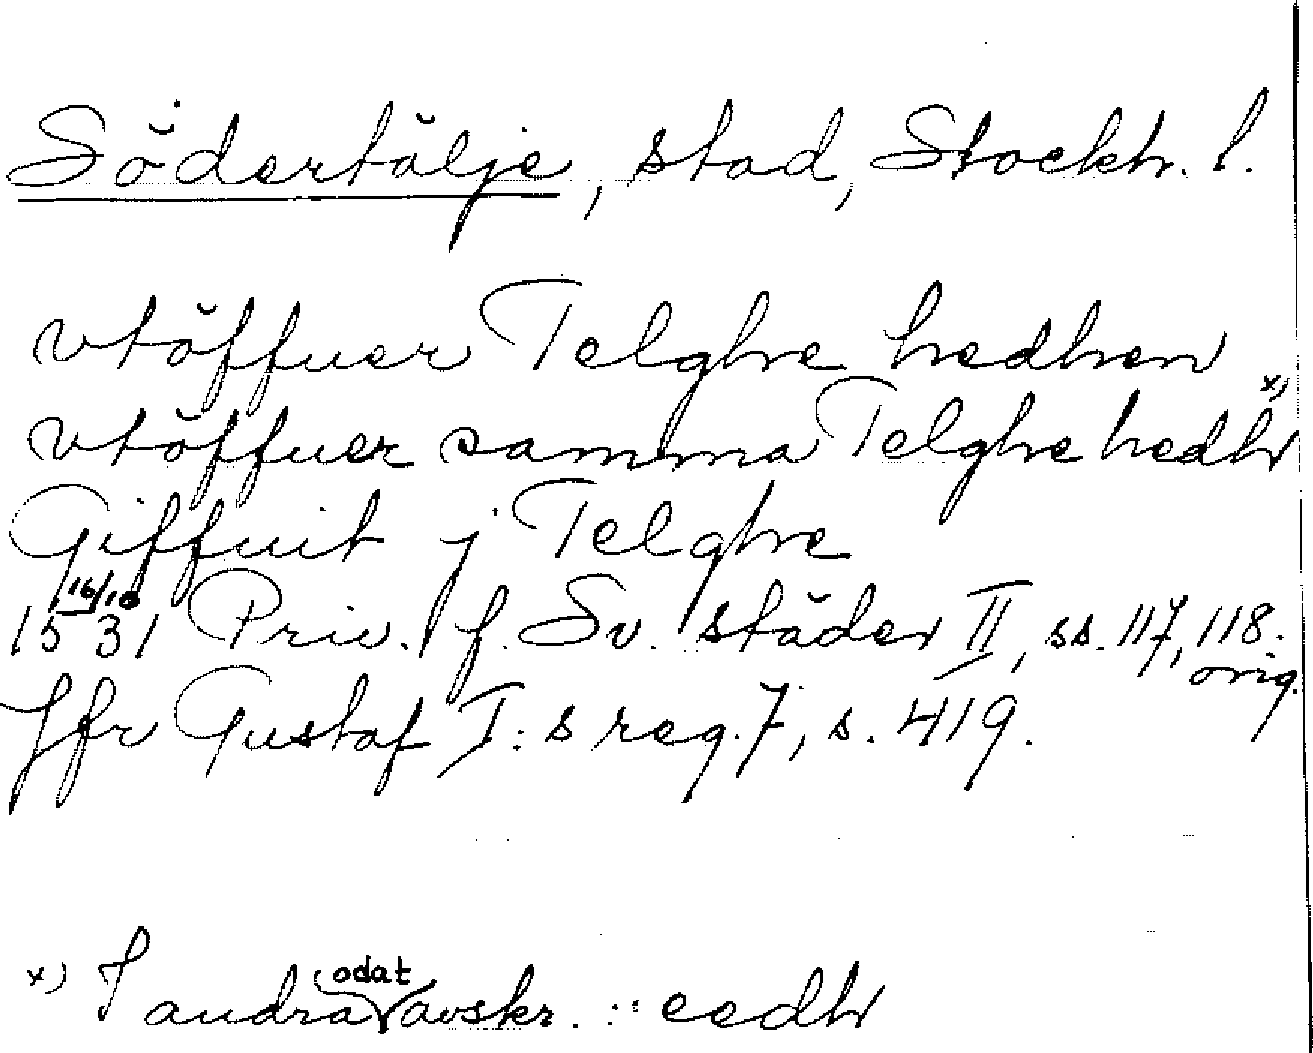 Södertälje, stad, Stockh. l.
vtöffuer Telghe hedhen
vtöffuer samma Telghe hedh x)
Giffuit j Telghe
16/10 1531 Priv. f. Sv. städer II, ss. 117, 118. orig.
Jfr Gustaf I:s reg. 7, s. 419.
x) I andra odat avskr. : eedh